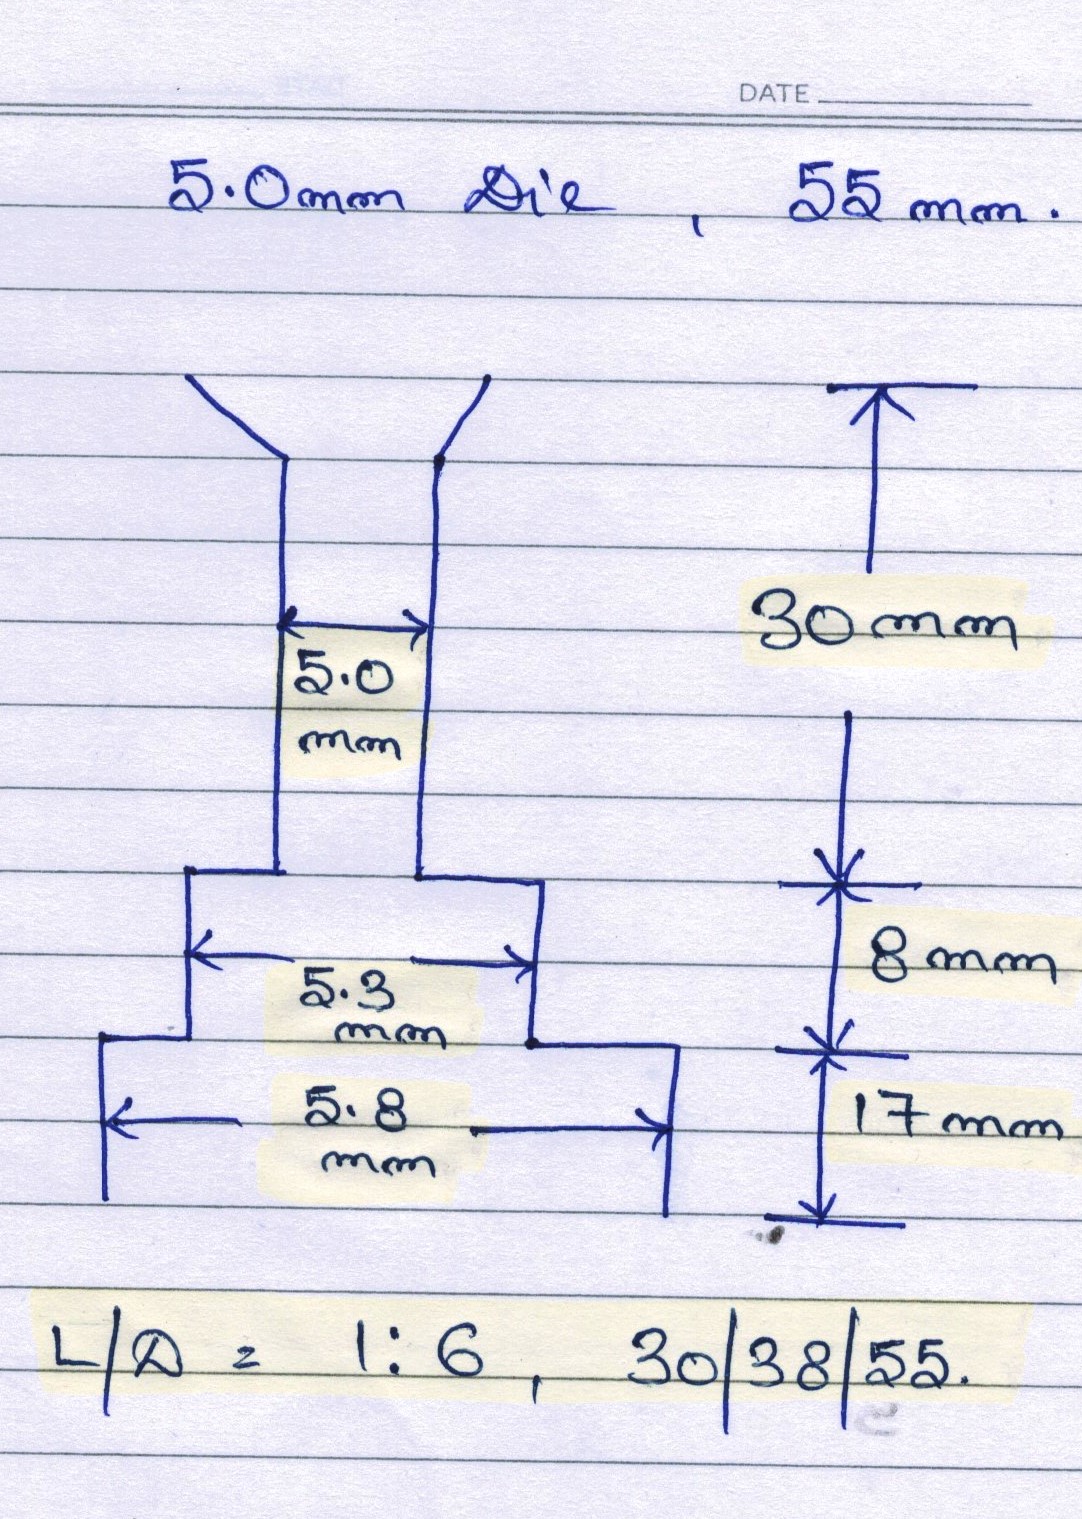 DATE
5.0mm Die , 55 mm.
30 mm
5.0
mm
8 mm
5.3
mm
17 mm
5.8
mm
L/D = 1:6 , 30/38/55.